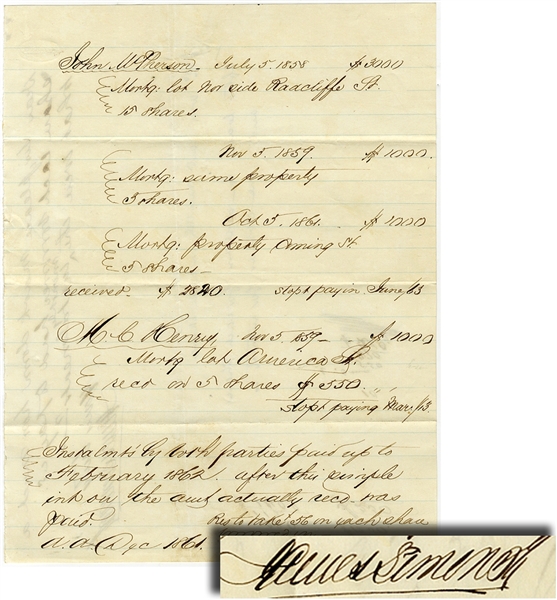 John McPherson - July 5. 1858 $3000
Mortg: lot Nor side Radcliffe St.
15 shares.
Nov 5. 1859. $1000.
Mortg: same property
5 shares.
Oct 5. 1861. $1000
Mortg: property Coming St
5 shares -
received $2820. stopt payin June/63
M C Henry. Nov 5. 1859 - $1000
Mortg lot America St.
recd on 5 shares $550. " "
stopt paying Mar:/63.
Instalmts by both parties paid up to
February 1862. after this simple
int on the amt actually recd was
paid. on each share
Dec 1861.
James Simons